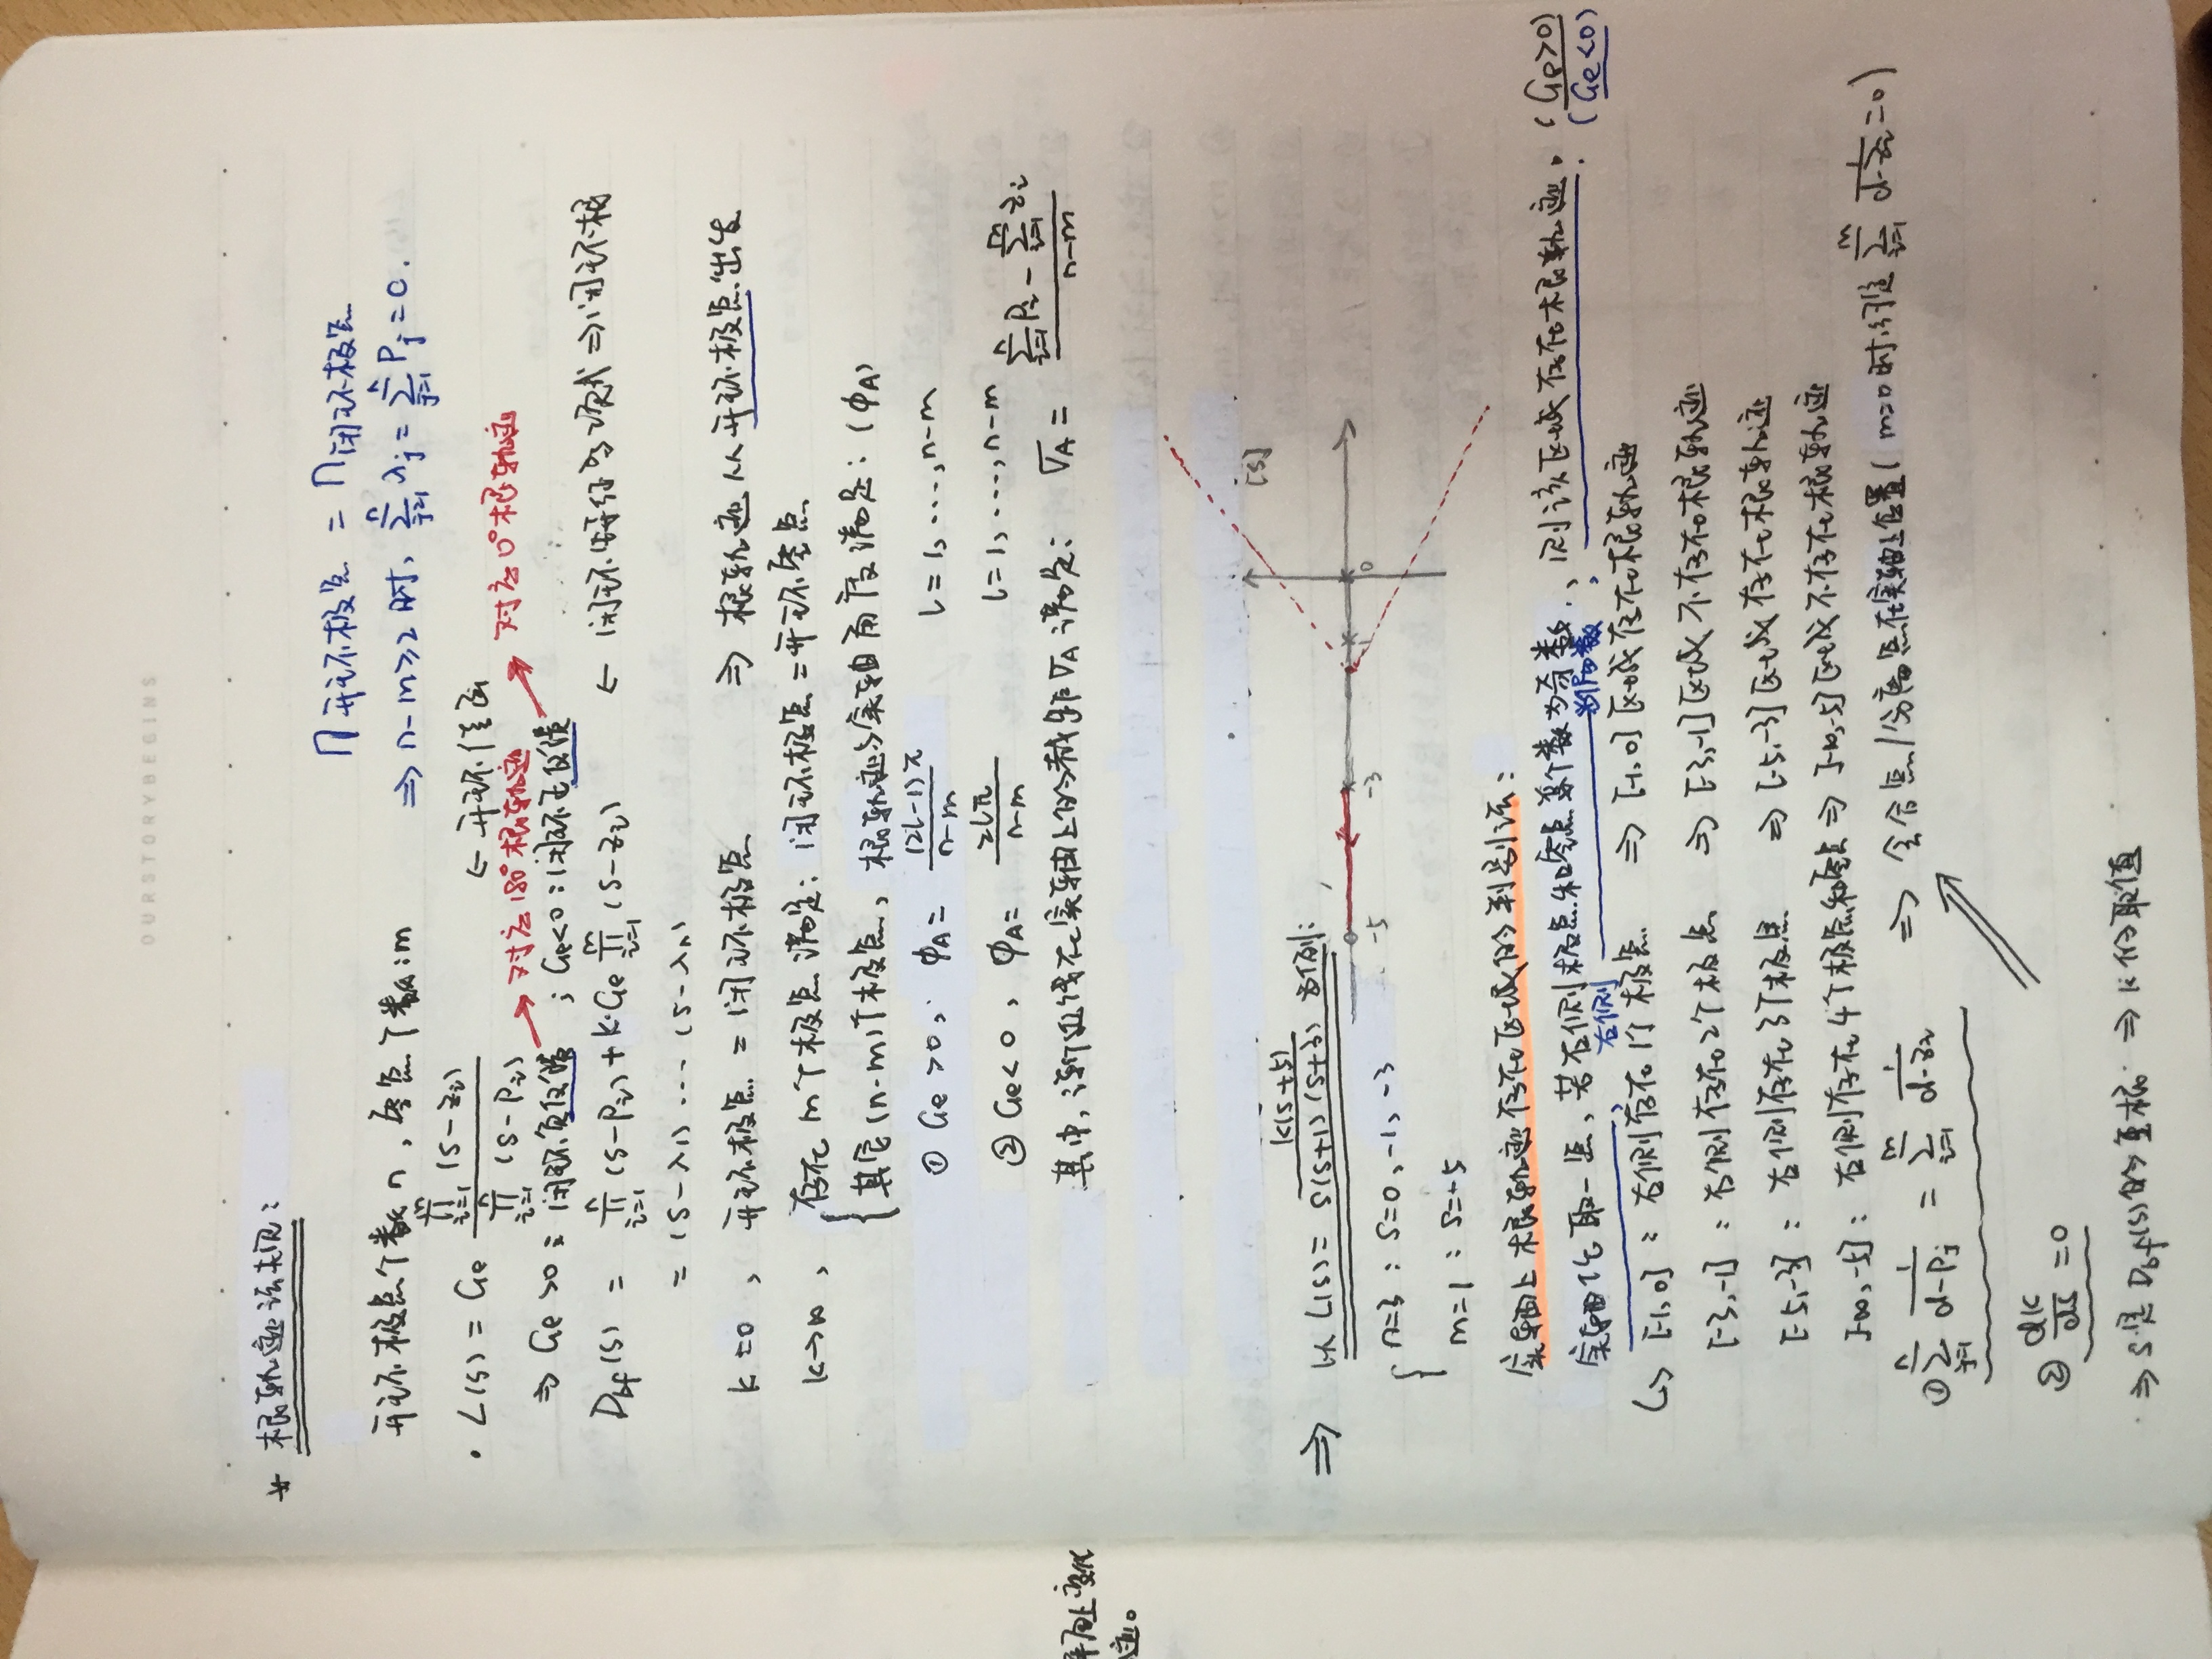 OURSTORYBEGINS
* 根轨迹法规:
n开环极点 = n闭环极点
开环极点个数n,零点个数:m
⇒ n-m≥2时, Σ_{j=1}^{n} λj = Σ_{j=1}^{n} Pj = 0.
· L(s) = Ge ∏_{i=1}^{m} (s-zi) / ∏_{i=1}^{n} (s-Pi) ← 开环传函
→ 对应180°根轨迹 → 对应0°根轨迹
⇒ Ge>0: 闭环负反馈 ; Ge<0:闭环正反馈
Dbf(s) = ∏_{i=1}^{n} (s-Pi) + K·Ge ∏_{i=1}^{m} (s-zi) ← 闭环特征多项式⇒闭环根
= (s-λ1) ··· (s-λn)
K=0, 开环极点 = 闭环极点 ⇒ 根轨迹从开环极点出发
K→∞, { 存在m个极点满足: 闭环极点=开环零点
其它(n-m)个极点, 根轨迹与实轴角度满足:(φA)
① Ge>0, φA = (2l-1)π / n-m l=1,…,n-m
② Ge<0, φA = 2lπ / n-m l=1,…,n-m
其中,渐近线在实轴上的截距σA满足: σA = (Σ_{i=1}^{n} Pi - Σ_{i=1}^{m} zi) / n-m
平面上变化
迹。
[s]
⇒ 以 L(s) = K(s+5) / s(s+1)(s+3) 为例:
-5 -3 -1 0
{ n=3 : s=0, -1, -3
m=1 : s=-5
实轴上根轨迹存在区域的判别法:
实轴任取一点,若右侧极点和零点总个数为奇数,则该区域存在根轨迹。(Ge>0)
右侧 为偶数, (Ge<0)
↳ [-1,0] : 右侧存在1个极点 ⇒ [-1,0]区域存在根轨迹
[-3,-1] : 右侧存在2个极点 ⇒ [-3,-1]区域不存在根轨迹
[-5,-3] : 右侧存在3个极点 ⇒ [-5,-3]区域存在根轨迹
]-∞,-5] : 右侧存在4个极点和零点 ⇒ ]-∞,-5]区域不存在根轨迹
① Σ_{j=1}^{n} 1/(d-Pj) = Σ_{i=1}^{m} 1/(d-zi) ⇒ 会合点/分离点在实轴上位置( m=0时, Σ_{i=1}^{m} 1/(d-zi) =0)
② dK/ds = 0
⇒ s是Dbf(s)的重根 ⇒ K的取值